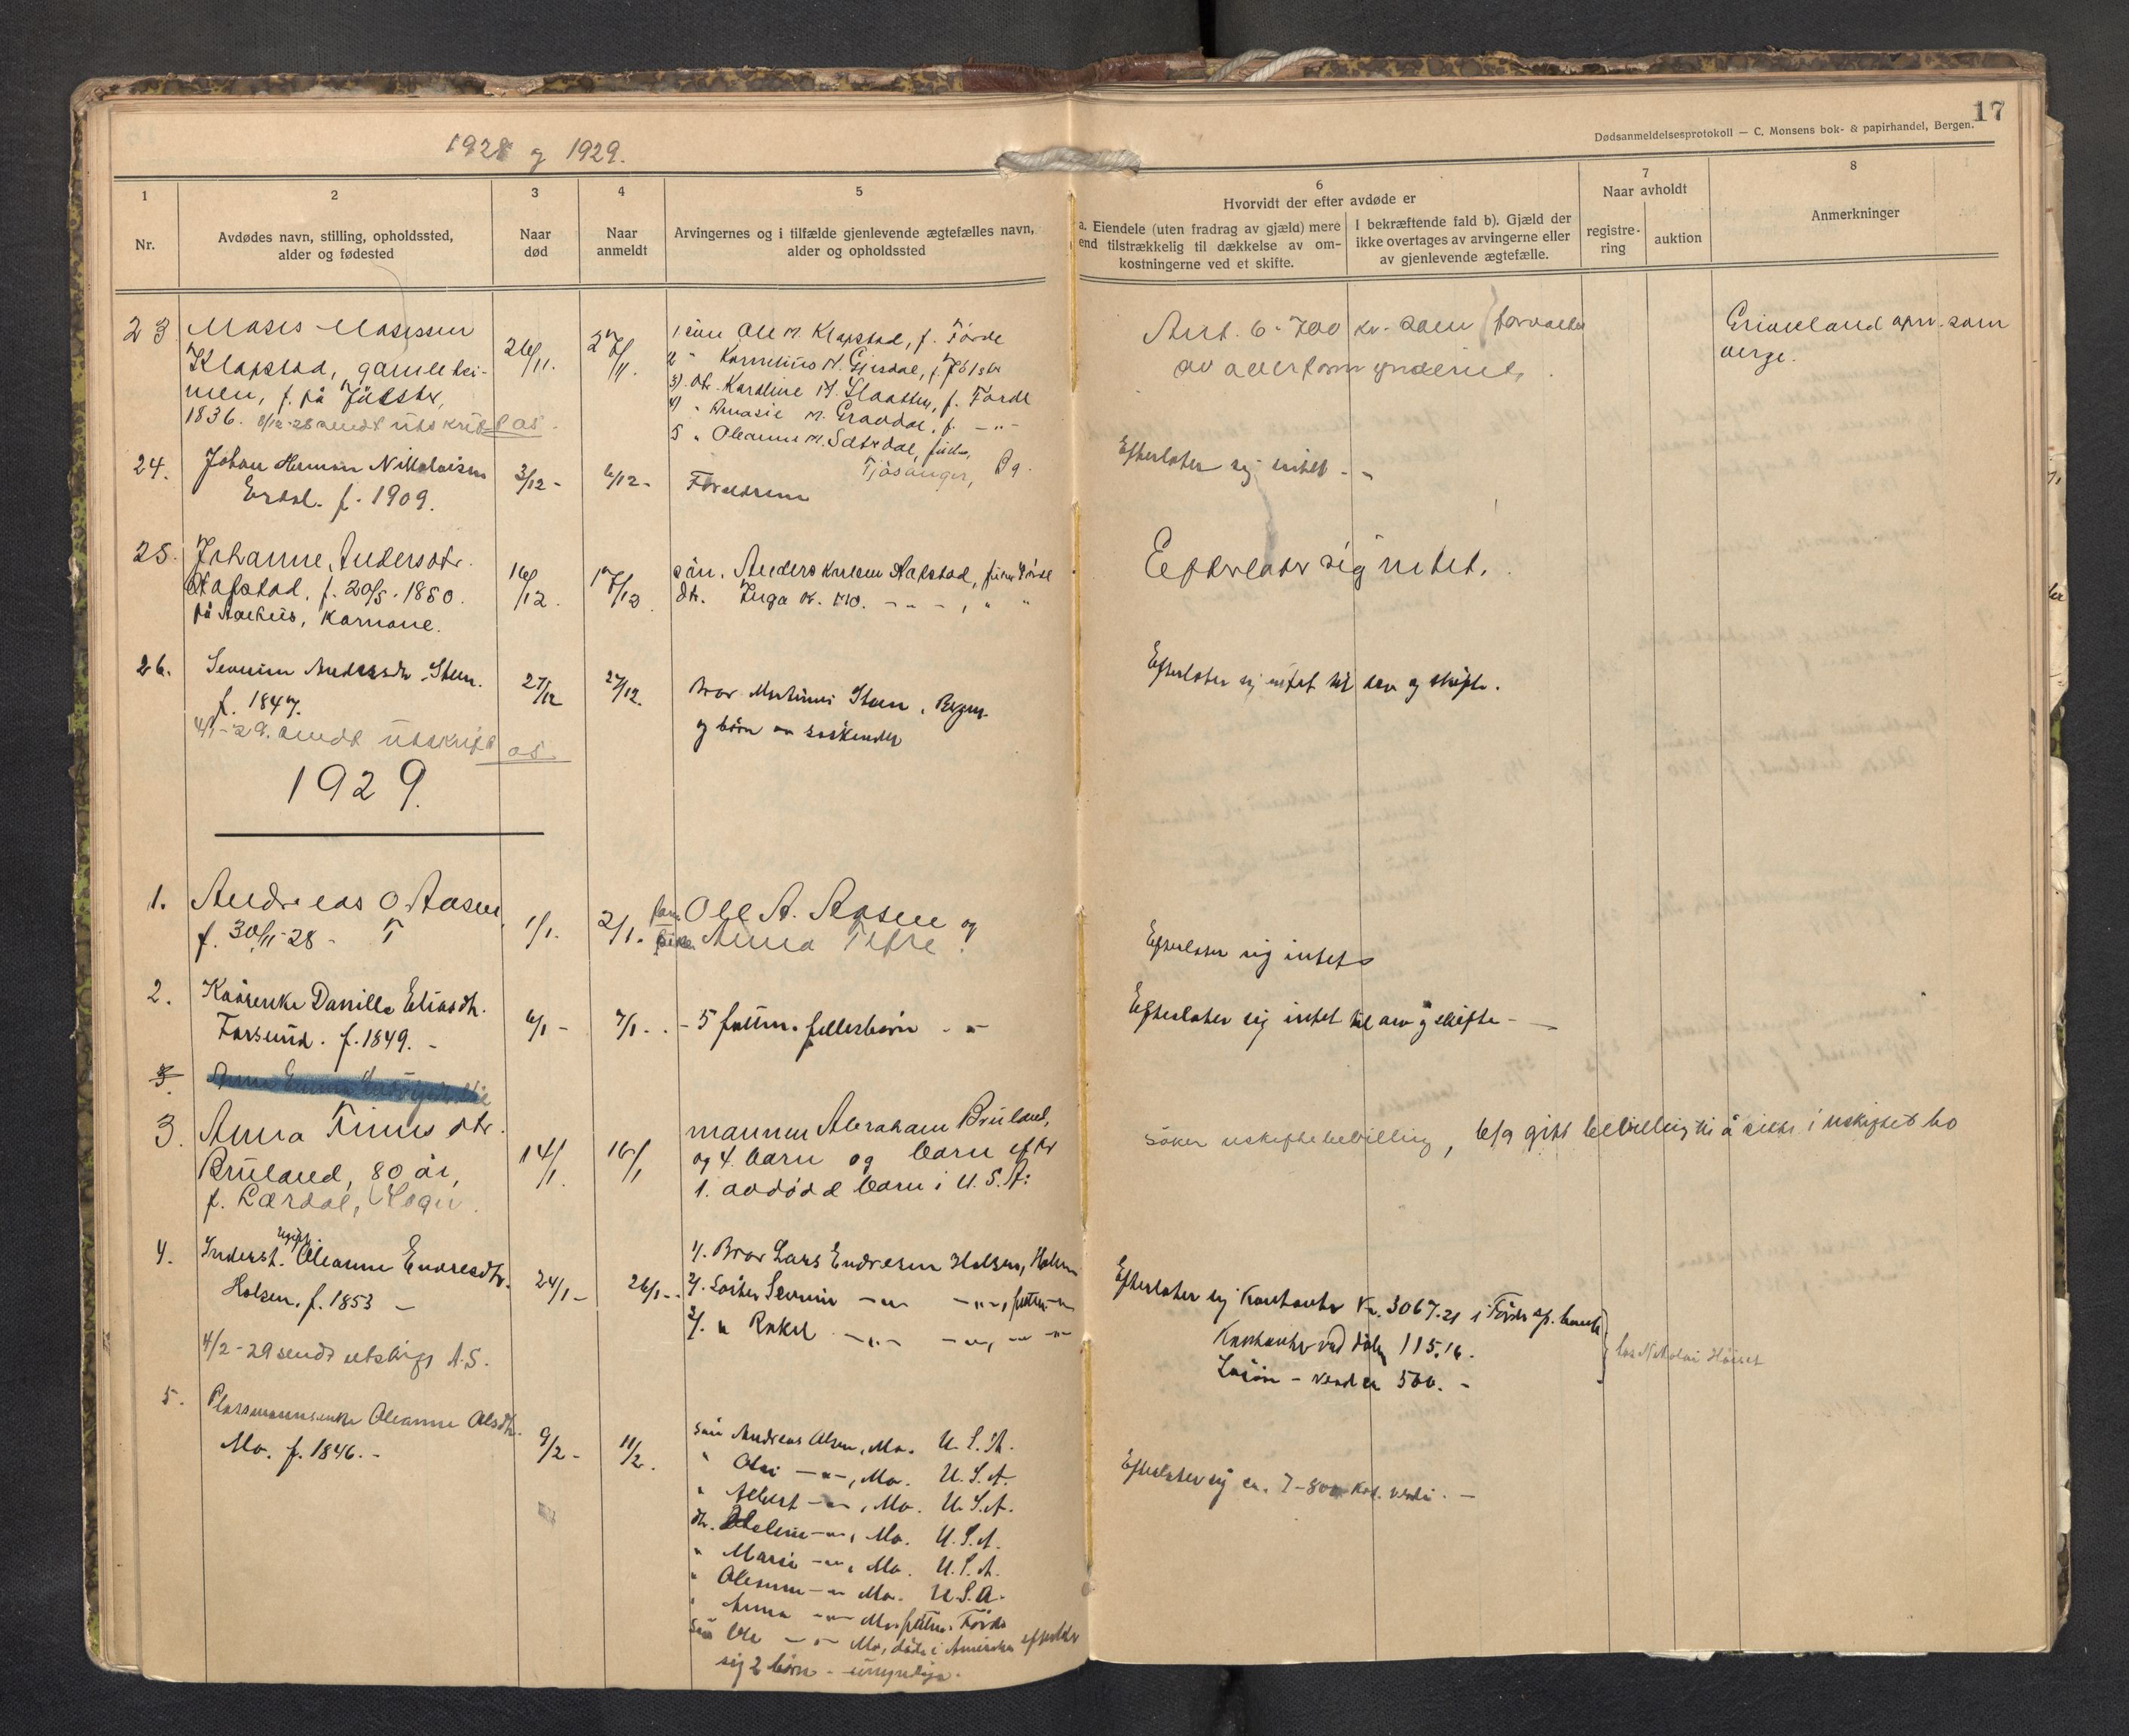 1928 og 1929.
17
Dødsanmeldelsesprotokoll — C. Monsens bok- & papirhandel, Bergen.
1
2
3
4
5
6
7
8
Nr.
Avdødes navn, stilling, opholdssted,
alder og fødested
Naar
død
Naar
anmeldt
Arvingernes og i tilfælde gjenlevende ægtefælles navn,
alder og opholdssted
Hvorvidt der efter avdøde er
a. Eiendele (uten fradrag av gjæld) mere
end tilstrækkelig til dækkelse av om-
kostningerne ved et skifte.
I bekræftende fald b). Gjæld der
ikke overtages av arvingerne eller
av gjenlevende ægtefælle.
Naar avholdt
registre-
ring
auktion
Anmerkninger
23
Moses Mosessen
Klapstad, gamlehei-
men, f. på Jölster,
1836. 8/12-28 sendt utskrift as.
26/11.
27/11.
1 sön Ole M. Klapstad, f. Förde
2 " Kornelius M. Gjesdal, f. Jölster
3) dtr. Karoline M. Slaatten, f. Förde
4) " M. f. -"-
5 " Oleanne M. Sætredal,
Fjösanger, Bg.
Ant. 6-700 kr. som forvaltes
av overformynderiet.
opn. som
verge.
24.
Johan Herman Nikolaisen
Erdal. f. 1909.
3/12 -
6/12 -
Foreldrene
Efterlater sig intet - -
25.
Johanne Andersdtr.
Hafstad, f. 20/5. 1850.
på Aarhus, Kornane.
16/12.
17/12.
sön. Anders Hafstad, Förde
dtr. Inga K. Mo. - " - , " "
Efterlater sig intet.
26.
Severine Andersdtr. Steen.
f. 1847.
4/1-29. sendt utskrift as.
27/12
27/12.
Bror Martinus Steen, Bergen
og börn av söskender
Efterlater sig intet til arv og skifte.
1929.
1.
Andreas O. Aasen,
f. 30/11-28 - T
1/1.
2/1.
Ole A. Aasen og
pike Anna Tefre.
Efterlater sig intet
2.
Kårenke Danille Eliasdtr.
Farsund. f. 1849. -
6/1 -
7/1 . .
- 5 fellesbörn - -
Efterlater sig intet til arv og skifte -
3.
3.
Anna Finnsdtr.
Bruland, 80 år,
f. Lærdal, Sogn.
14/1.
16/1
mannen Abraham Bruland,
og 4. barn og barn efter
1. avdöd barn i U.S.A.
Söker uskiftebevilling, 6/9 gitt bevilling til å sitte i uskiftet bo
4.
Inderst. ugift. Oleanne Endresdtr.
Holsen. f. 1853 -
4/2-29 sendt utskrift A.S.
24/1 -
26/1 - .
1/. Bror Lars Endresen Holsen, Holsen
2/. Söster Severine -"- -"-,
3/. " Rakel -"- -"-, -"-
Efterlater sig Kontanter Kr. 3067.21 i Förde sp. bank
Kontanter ved döden 115.16.
Lösöre - verd ca 500. -
hos Nikolai
5.
Plassmannsenke Oleanne Olsdtr.
Mo. f. 1846. -
9/2 -
11/2.
Sön Andreas Olsen, Mo. U.S.A.
" Olai -"-, Mo. U.S.A.
" Albert -"-, Mo. U.S.A.
dtr. -"-, Mo. U.S.A.
" Marie -"-, Mo. U.S.A.
" Oleanne -"- Mo. U.S.A.
" Anna -"- Mo. Förde
Sön Ole -"- Mo, döde i Amerika efterlater
sig 2 börn - umyndige.
Efterlater sig ca. 7-800 Kr. i verdi. -